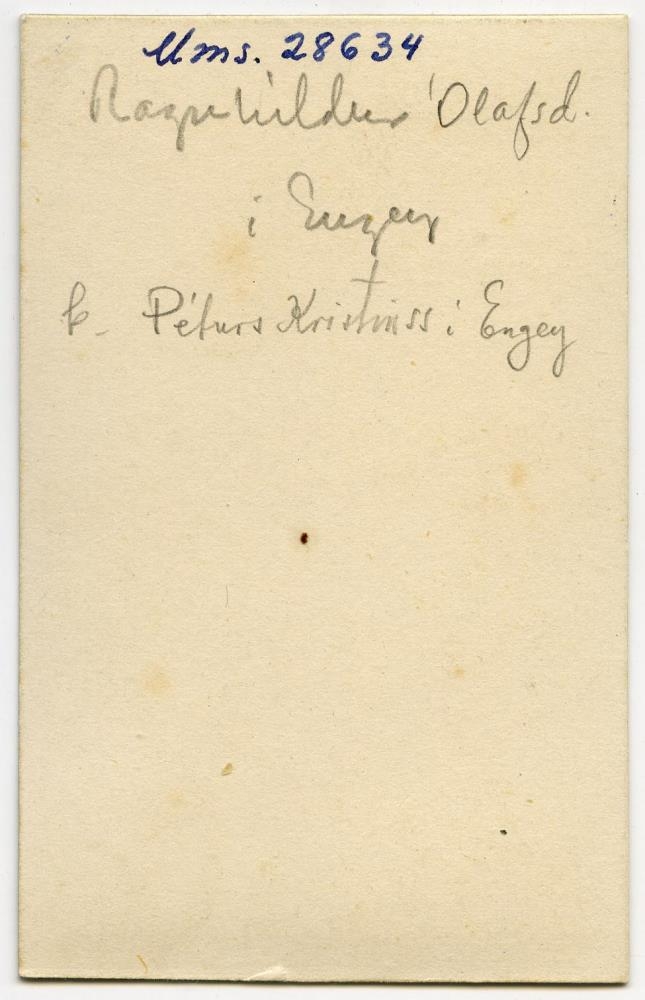 Mms. 28634
Ragnhildur Ólafsd.
í Engey
k. Péturs Kristinss í Engey